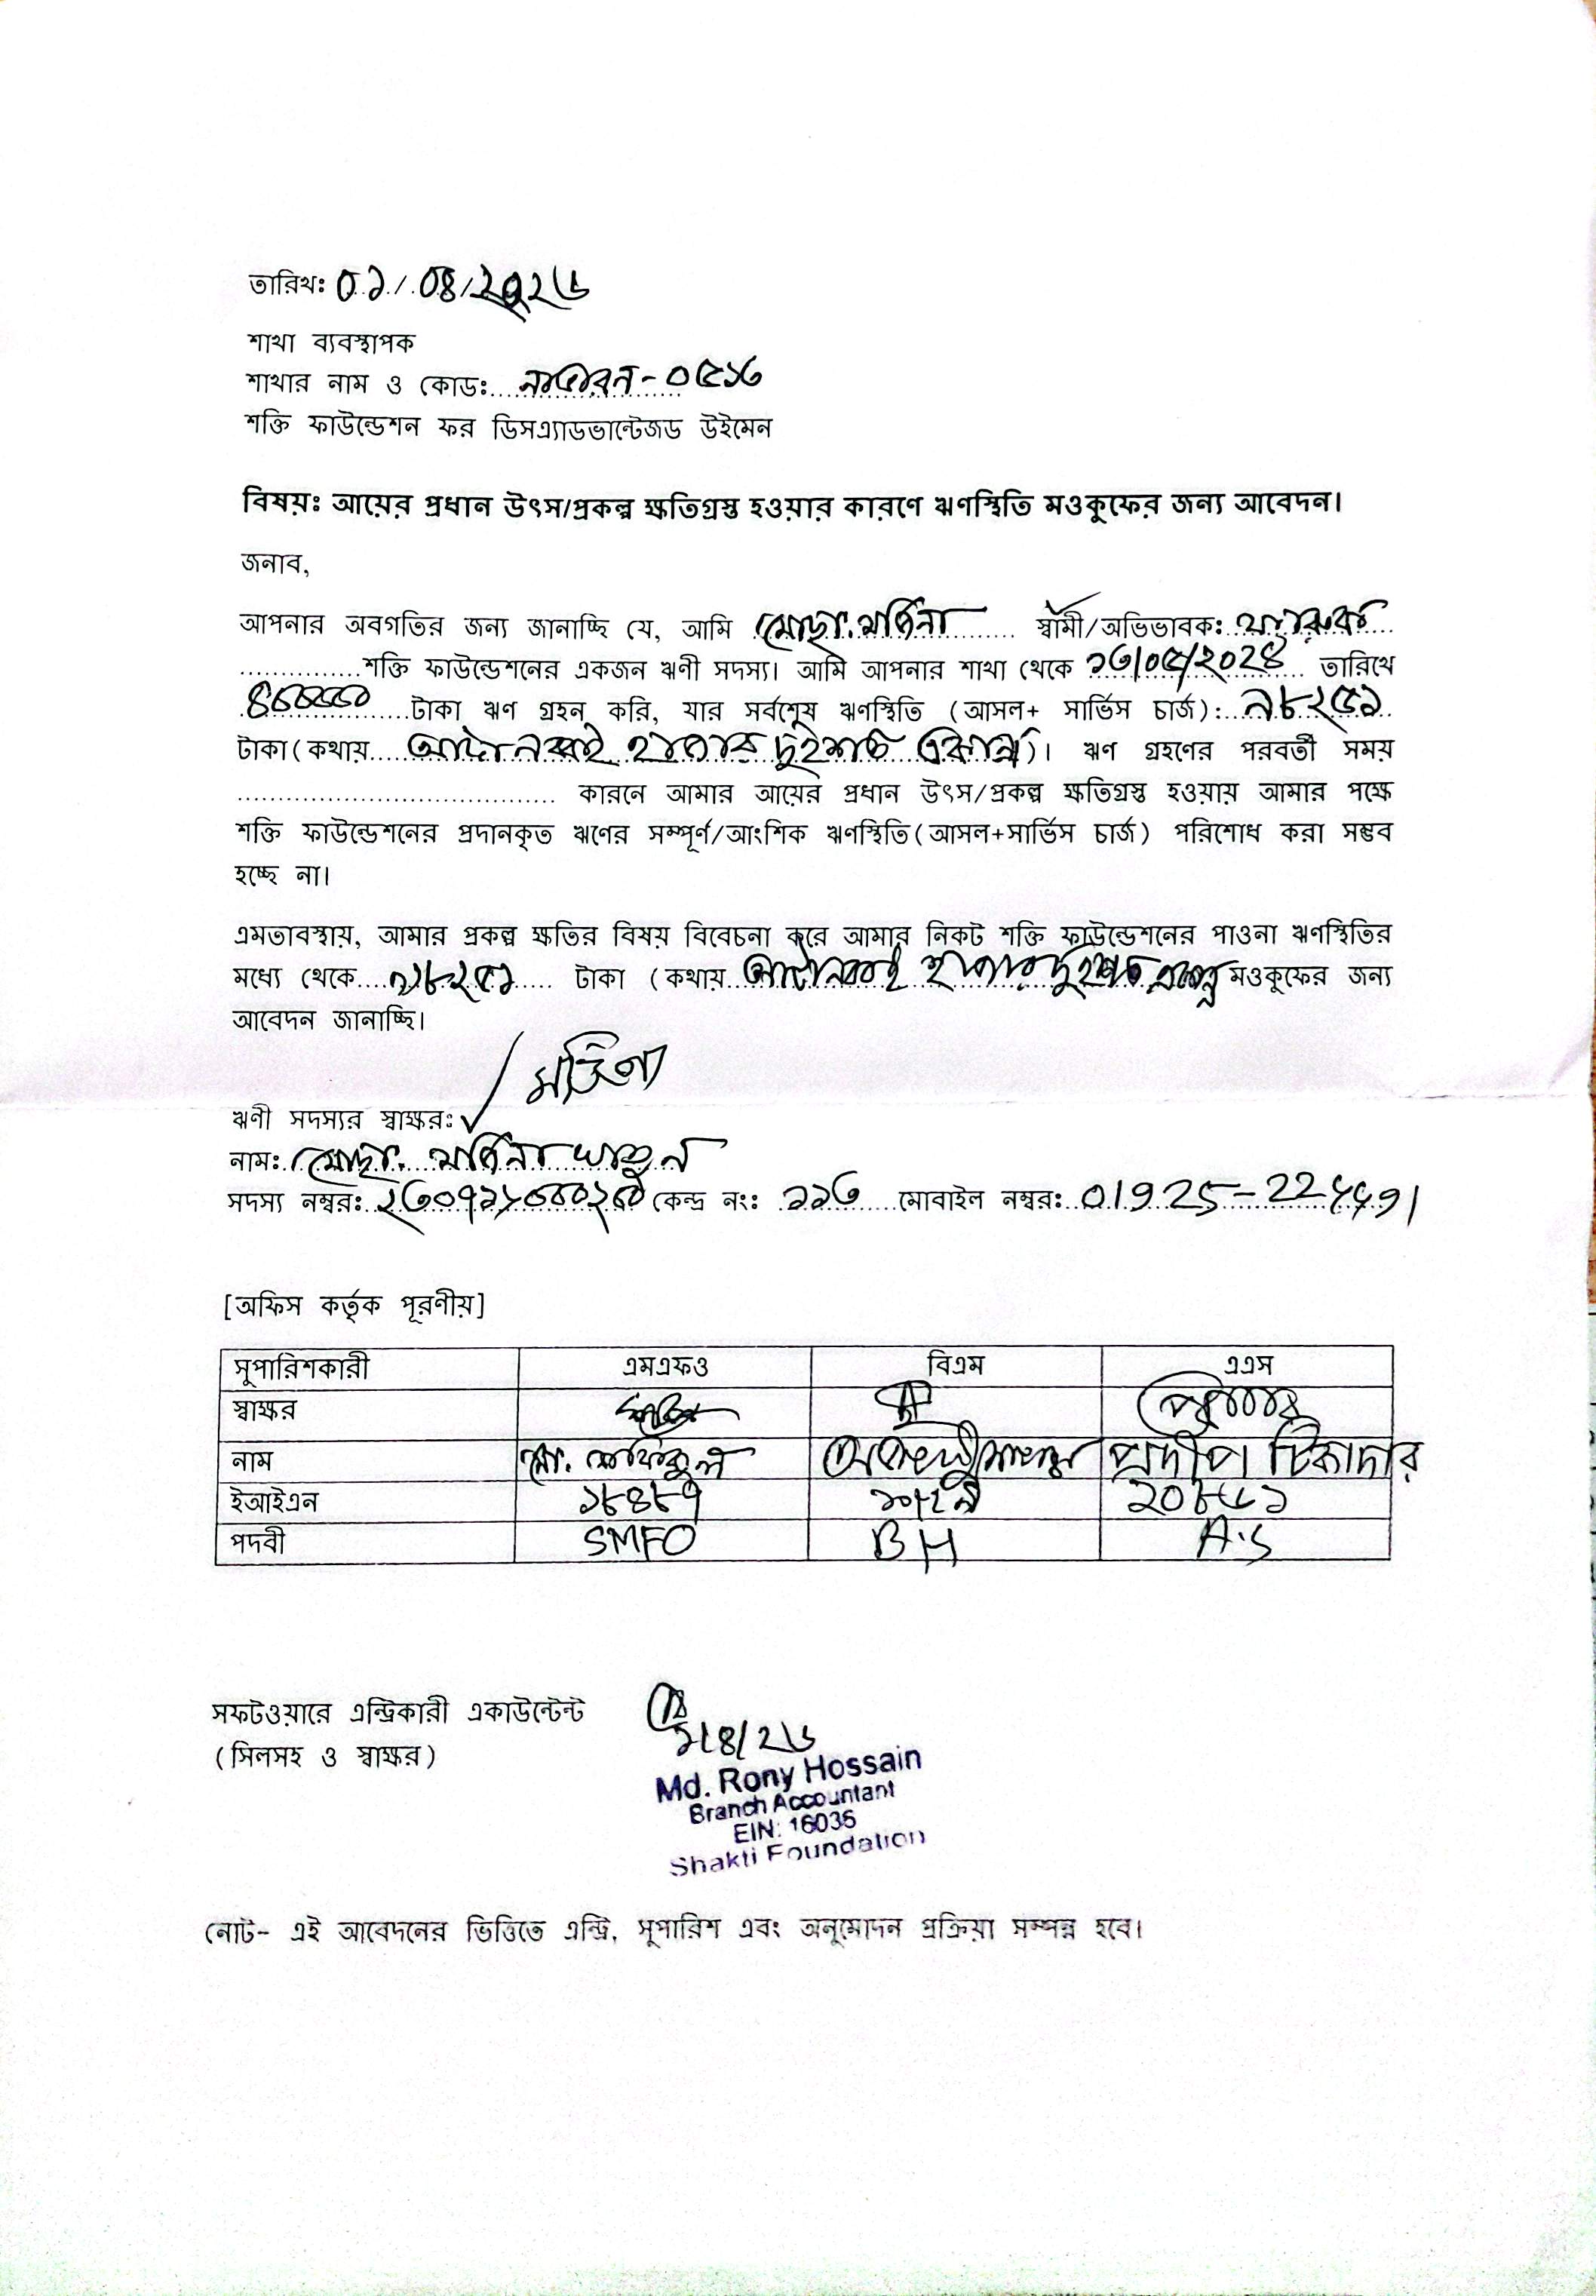 তারিখঃ ০১/০৪/২০২৬
শাখা ব্যবস্থাপক
শাখার নাম ও কোডঃ - ০৫১৩
শক্তি ফাউন্ডেশন ফর ডিসএ্যাডভান্টেজড উইমেন
বিষয়ঃ আয়ের প্রধান উৎস/প্রকল্প ক্ষতিগ্রস্ত হওয়ার কারণে ঋণস্থিতি মওকুফের জন্য আবেদন।
জনাব,
আপনার অবগতির জন্য জানাচ্ছি যে, আমি মোছা. মর্জিনা স্বামী/অভিভাবকঃ
শক্তি ফাউন্ডেশনের একজন ঋণী সদস্য। আমি আপনার শাখা থেকে ১৩/০৫/২০২৪ তারিখে
টাকা ঋণ গ্রহন করি, যার সর্বশেষ ঋণস্থিতি (আসল+ সার্ভিস চার্জ): ৯৮২৫১
টাকা(কথায় আটানব্বই হাজার দুইশত একান্ন)। ঋণ গ্রহণের পরবর্তী সময়
কারনে আমার আয়ের প্রধান উৎস/প্রকল্প ক্ষতিগ্রস্ত হওয়ায় আমার পক্ষে
শক্তি ফাউন্ডেশনের প্রদানকৃত ঋণের সম্পূর্ণ/আংশিক ঋণস্থিতি(আসল+সার্ভিস চার্জ) পরিশোধ করা সম্ভব
হচ্ছে না।
এমতাবস্থায়, আমার প্রকল্প ক্ষতির বিষয় বিবেচনা করে আমার নিকট শক্তি ফাউন্ডেশনের পাওনা ঋণস্থিতির
মধ্যে থেকে ৯৮২৫১ টাকা (কথায় আটানব্বই হাজার দুইশত একান্ন মওকুফের জন্য
আবেদন জানাচ্ছি।
মর্জিনা
ঋণী সদস্যর স্বাক্ষরঃ
নামঃ মোছা. মর্জিনা খাতুন
সদস্য নম্বরঃ কেন্দ্র নংঃ ১১৩ মোবাইল নম্বরঃ
[অফিস কর্তৃক পূরণীয়]
সুপারিশকারী এমএফও বিএম এএস
স্বাক্ষর
নাম মো. শফিকুল প্রদীপ টিকাদার
ইআইএন ১৮৪৮৭
পদবী SMFO BH A.S
সফটওয়ারে এন্ট্রিকারী একাউন্টেন্ট
(সিলসহ ও স্বাক্ষর)
১/৪/২৬
Md. Rony Hossain
Branch Accountant
EIN: 16036
Shakti Foundation
নোট- এই আবেদনের ভিত্তিতে এন্ট্রি, সুপারিশ এবং অনুমোদন প্রক্রিয়া সম্পন্ন হবে।